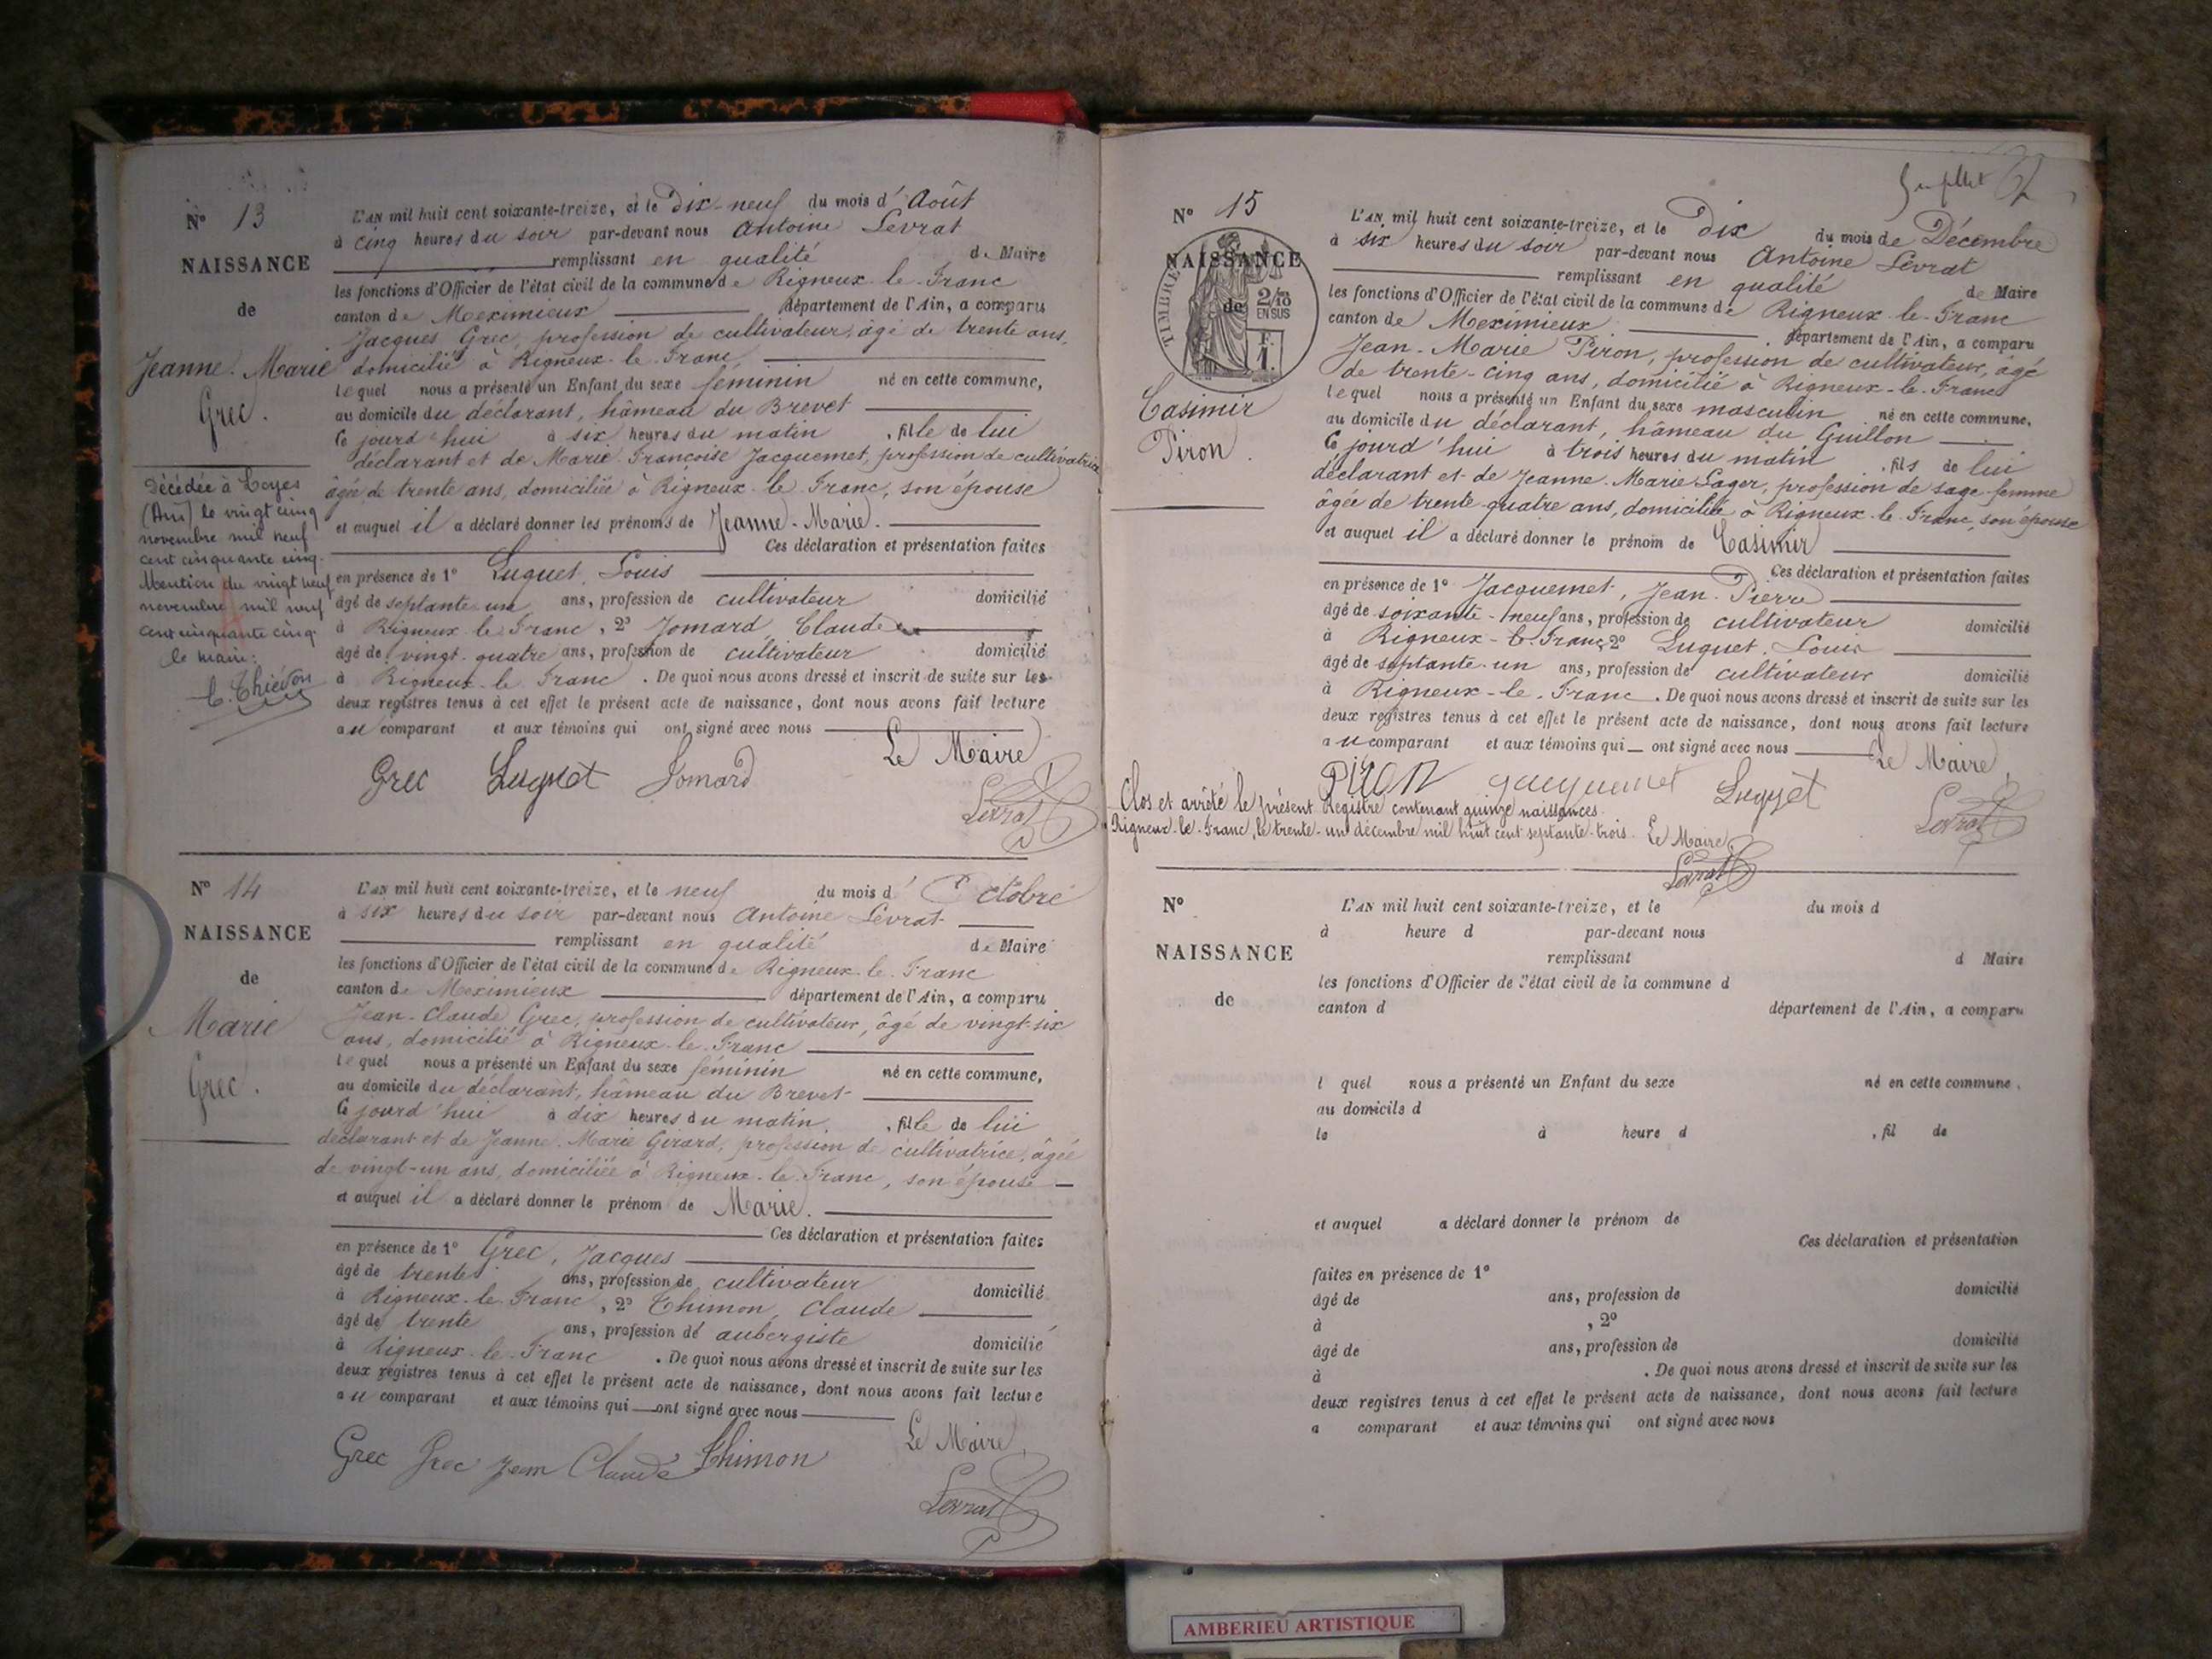 N° 13
NAISSANCE
de
Jeanne-Marie
Grec.
Décédée à Loyes
(Ain) le vingt cinq
novembre mil neuf
cent cinquante cinq.
Mention du vingt neuf
novembre mil neuf
cent cinquante cinq.
Le maire:
L'AN mil huit cent soixante-treize, et le Dix-neuf du mois d'Août
à cinq heures du soir par-devant nous Antoine Levrat
remplissant en qualité de Maire
les fonctions d'Officier de l'état civil de la commune de Rigneux-le-Franc
canton de Meximieux département de l'Ain, a comparu
Jacques Grec, profession de cultivateur, âgé de trente ans,
domicilié à Rigneux-le-Franc
lequel nous a présenté un Enfant du sexe féminin né en cette commune,
au domicile du déclarant, hâmeau du Brevet
Ce jourd'hui à six heures du matin, fille de lui
déclarant et de Marie Françoise Jacquemet, profession de cultivatrice
âgée de trente ans, domiciliée à Rigneux-le-Franc, son épouse
et auquel il a déclaré donner les prénoms de Jeanne-Marie.
Ces déclaration et présentation faites
en présence de 1° Luguet, Louis
âgé de septante-un ans, profession de cultivateur domicilié
à Rigneux-le-Franc, 2° Jomard, Claude
âgé de vingt-quatre ans, profession de cultivateur domicilié
à Rigneux-le-Franc. De quoi nous avons dressé et inscrit de suite sur les
deux registres tenus à cet effet le présent acte de naissance, dont nous avons fait lecture
au comparant et aux témoins qui ont signé avec nous
Le Maire
Grec Luguet Jomard
Levrat
N° 14
NAISSANCE
de
Marie
Grec.
L'AN mil huit cent soixante-treize, et le neuf du mois d'Octobre
à six heures du soir par-devant nous Antoine Levrat
remplissant en qualité de Maire
les fonctions d'Officier de l'état civil de la commune de Rigneux-le-Franc
canton de Meximieux département de l'Ain, a comparu
Jean-Claude Grec, profession de cultivateur, âgé de vingt-six
ans, domicilié à Rigneux-le-Franc
lequel nous a présenté un Enfant du sexe féminin né en cette commune,
au domicile du déclarant, hâmeau du Brevet
Ce jourd'hui à dix heures du matin, fille de lui
déclarant et de Jeanne-Marie Girard, profession de cultivatrice, âgée
de vingt-un ans, domiciliée à Rigneux-le-Franc, son épouse
et auquel il a déclaré donner le prénom de Marie.
Ces déclaration et présentation faites
en présence de 1° Grec, Jacques
âgé de trente ans, profession de cultivateur domicilié
à Rigneux-le-Franc, 2° Thimon, Claude
âgé de trente ans, profession de aubergiste domicilié
à Rigneux-le-Franc. De quoi nous avons dressé et inscrit de suite sur les
deux registres tenus à cet effet le présent acte de naissance, dont nous avons fait lecture
au comparant et aux témoins qui ont signé avec nous
Le Maire
Grec Grec Jean Claude Thimon
Levrat
N° 15
NAISSANCE
de
TIMBRE
2/10
EN SUS
F.
1.
Casimir
Piron.
L'AN mil huit cent soixante-treize, et le Dix du mois de Décembre
à six heures du soir par-devant nous Antoine Levrat
remplissant en qualité de Maire
les fonctions d'Officier de l'état civil de la commune de Rigneux-le-Franc
canton de Meximieux département de l'Ain, a comparu
Jean-Marie Piron, profession de cultivateur, âgé
de trente-cinq ans, domicilié à Rigneux-le-Franc
lequel nous a présenté un Enfant du sexe masculin né en cette commune,
au domicile du déclarant, hâmeau du Guillon
Ce jourd'hui à trois heures du matin, fils de lui
déclarant et de Jeanne-Marie Lager, profession de sage-femme
âgée de trente-quatre ans, domiciliée à Rigneux-le-Franc, son épouse
et auquel il a déclaré donner le prénom de Casimir
Ces déclaration et présentation faites
en présence de 1° Jacquemet, Jean-Pierre
âgé de soixante-neuf ans, profession de cultivateur domicilié
à Rigneux-le-Franc, 2° Luguet, Louis
âgé de septante-un ans, profession de cultivateur domicilié
à Rigneux-le-Franc. De quoi nous avons dressé et inscrit de suite sur les
deux registres tenus à cet effet le présent acte de naissance, dont nous avons fait lecture
au comparant et aux témoins qui ont signé avec nous
Le Maire,
Piron Jacquemet Luguet
Levrat
Clos et arrêté le présent Registre contenant quinze naissances.
Rigneux-le-Franc, le trente-un décembre mil huit cent septante-trois. Le Maire,
Levrat
N°
NAISSANCE
de
L'AN mil huit cent soixante-treize, et le du mois d
à heure d par-devant nous
remplissant d Maire
les fonctions d'Officier de l'état civil de la commune d
canton d département de l'Ain, a comparu
l quel nous a présenté un Enfant du sexe né en cette commune,
au domicile d
le à heure d , fil de
et auquel a déclaré donner le prénom de
Ces déclaration et présentation
faites en présence de 1°
âgé de ans, profession de domicilié
à , 2°
âgé de ans, profession de domicilié
à . De quoi nous avons dressé et inscrit de suite sur les
deux registres tenus à cet effet le présent acte de naissance, dont nous avons fait lecture
a comparant et aux témoins qui ont signé avec nous
AMBERIEU ARTISTIQUE